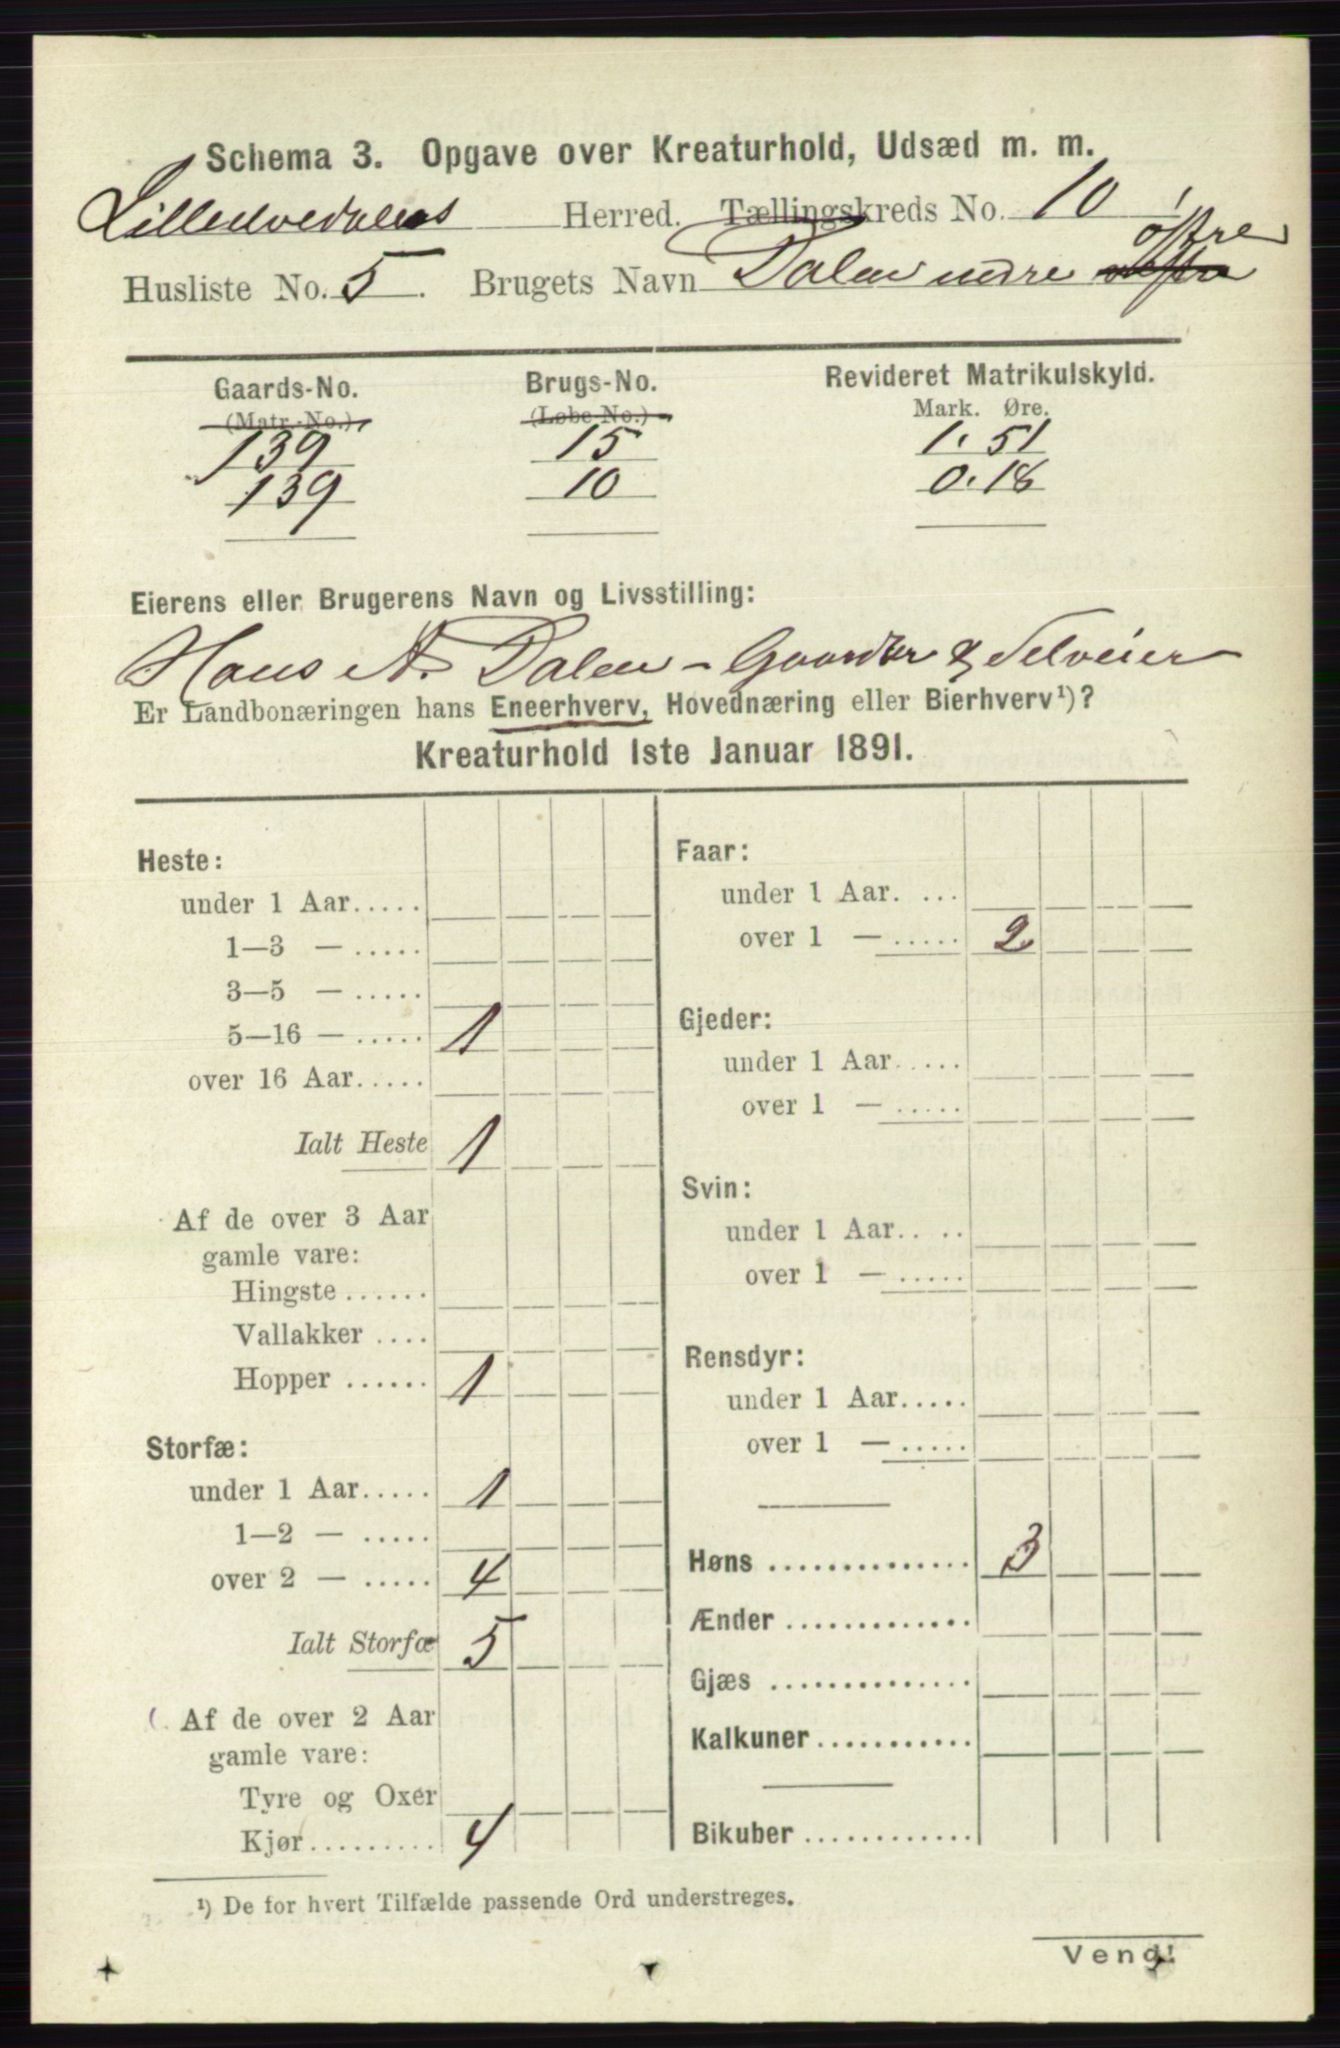 Schema 3. Opgave over Kreaturhold, Udsæd m. m.
Lilleelvedalens Herred. Tællingskreds No. 10,
østre
Husliste No. 5. Brugets Navn Dalen nedre vestre
Gaards-No. Brugs-No. Revideret Matrikulskyld.
(Matr.-No.) (Løbe-No.) Mark. Øre.
139 15 1.51
139 10 0.18
Eierens eller Brugerens Navn og Livsstilling:
Hans A. Dalen - Gaardbr & Selveier
Er Landbonæringen hans Eneerhverv, Hovednæring eller Bierhverv¹)?
Kreaturhold 1ste Januar 1891.
Heste:
under 1 Aar.....
1—3 — .....
3—5 — .....
5—16 — ..... 1
over 16 Aar.....
Ialt Heste 1
Af de over 3 Aar
gamle vare:
Hingste ......
Vallakker ....
Hopper ...... 1
Storfæ:
under 1 Aar..... 1
1—2 — .....
over 2 — ..... 4
Ialt Storfæ 5
Af de over 2 Aar
gamle vare:
Tyre og Oxer
Kjør......... 4
Faar:
under 1 Aar. ...
over 1 — ..... 2
Gjeder:
under 1 Aar.....
over 1 — .....
Svin:
under 1 Aar.. ..
over 1 — .....
Rensdyr:
under 1 Aar.....
over 1 — .....
Høns .............. 3
Ænder .............
Gjæs ..............
Kalkuner...........
Bikuber ............
¹) De for hvert Tilfælde passende Ord understreges.
Vend!